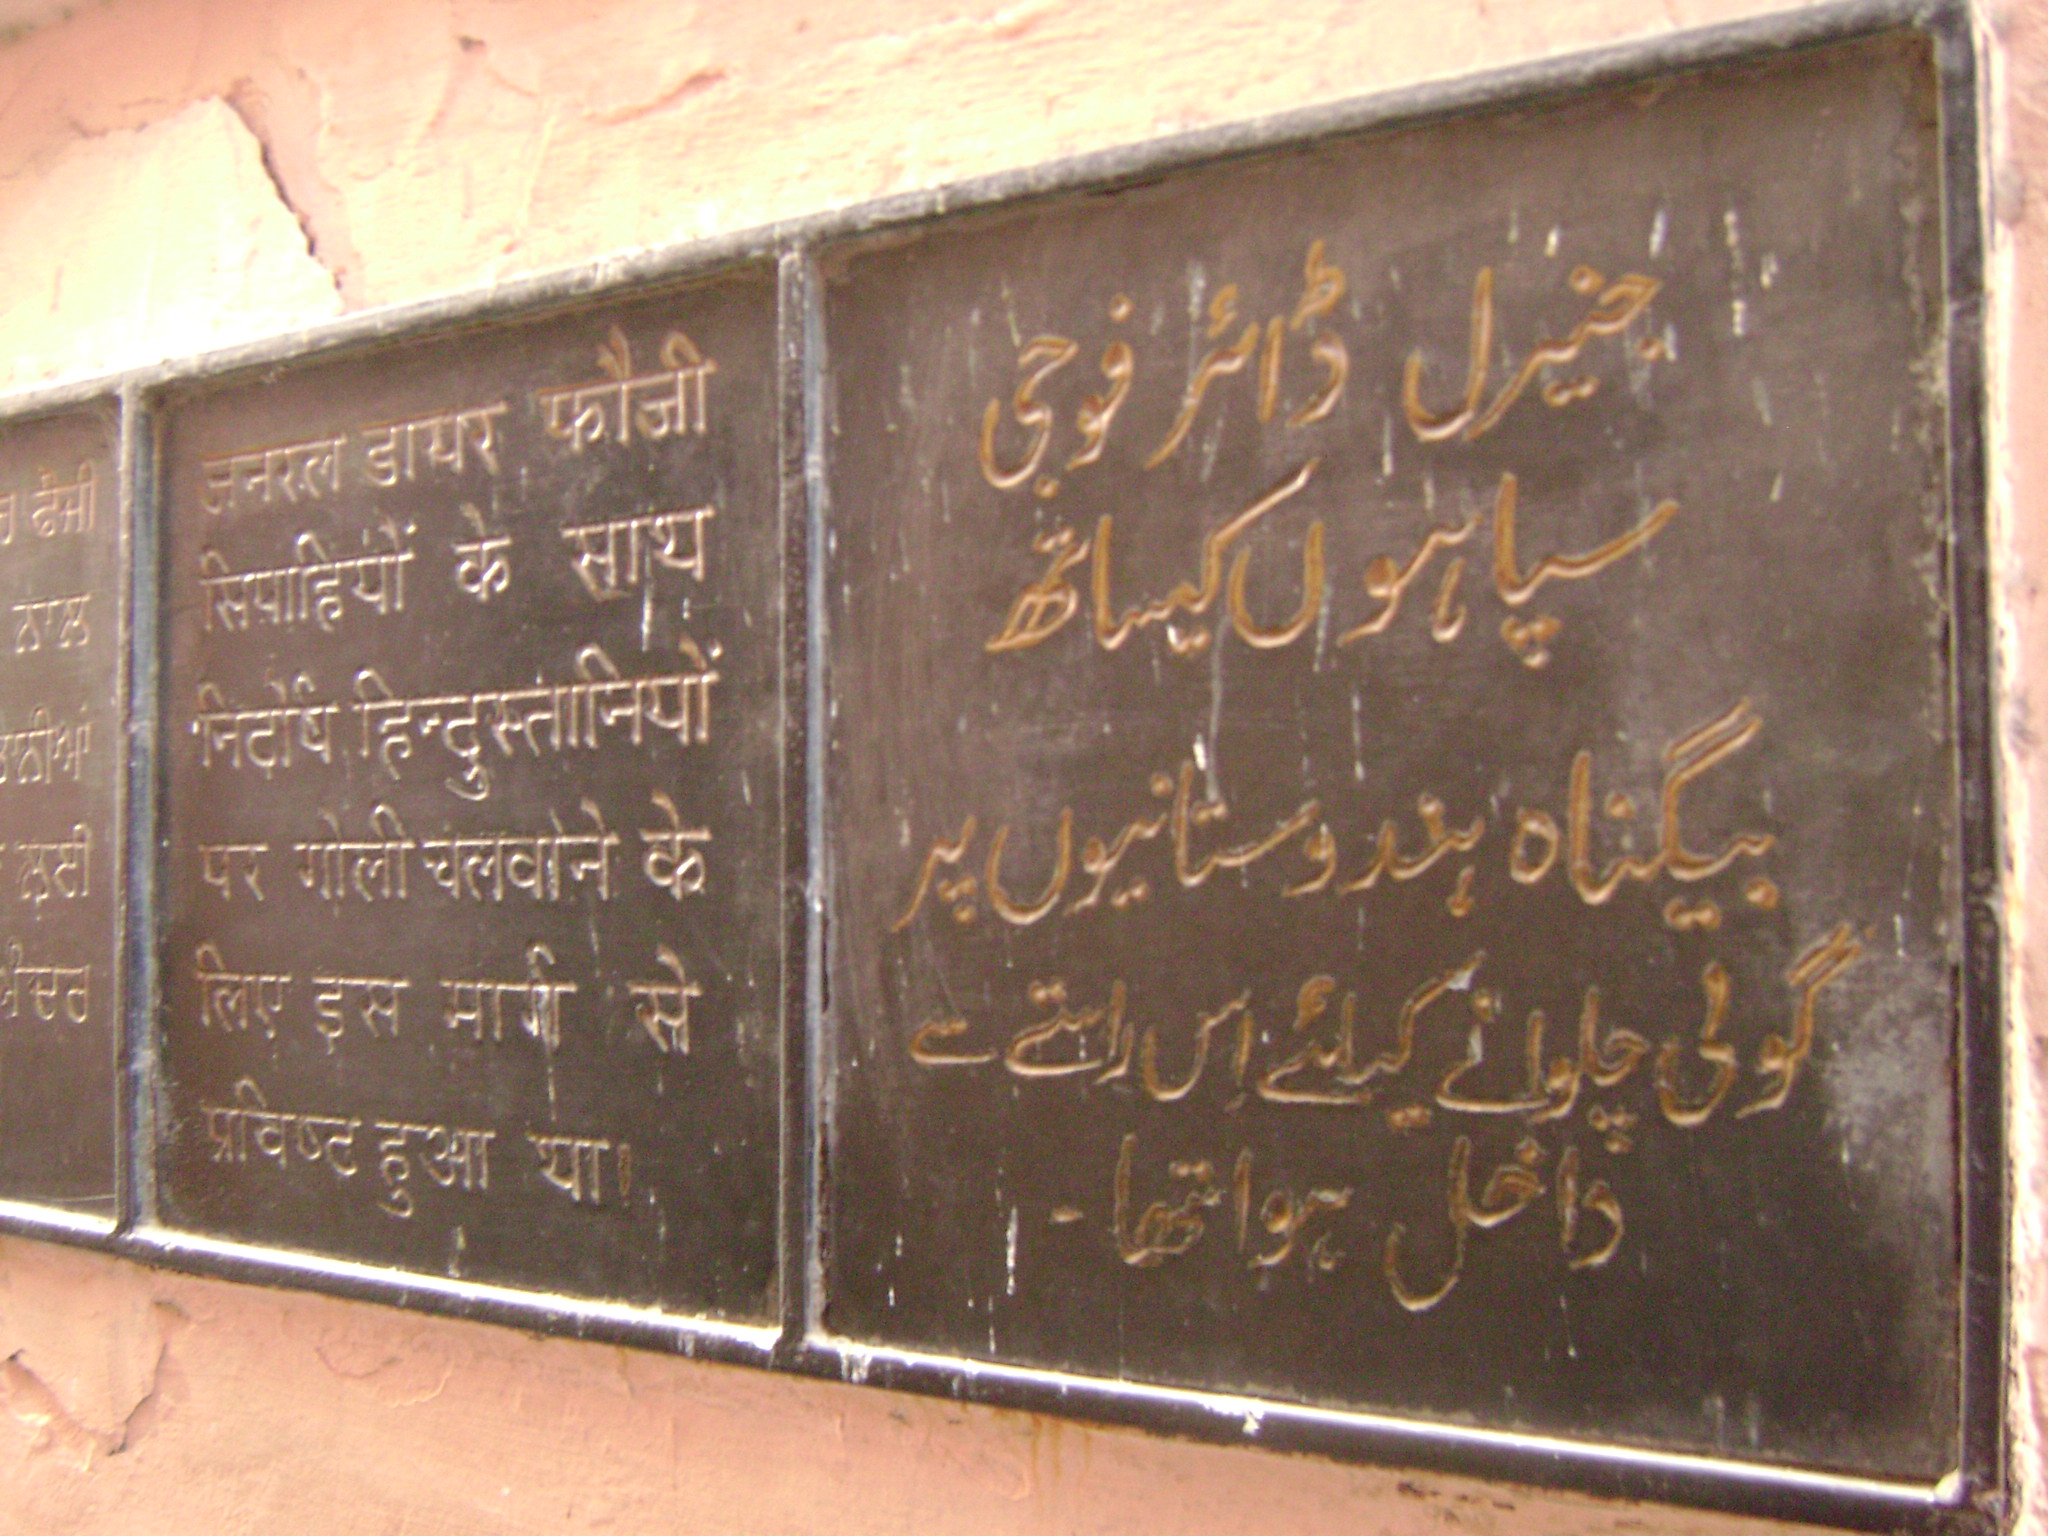 ਫੌਜੀ
ਨਾਲ
ਲਈ
ਅੰਦਰ
जनरल डायर फौजी
सिपाहियों के साथ
निर्दोष हिन्दुस्तानियों
पर गोली चलवाने के
लिए इस मार्ग से
प्रविष्ट हुआ था।
جنیرل ڈائر فوجی
سپاہوں کیساتھ
بیگناہ ہندوستانیوں پر
گولی چلوانے کیلئے اِس راستے سے
داخل ہوا تھا-